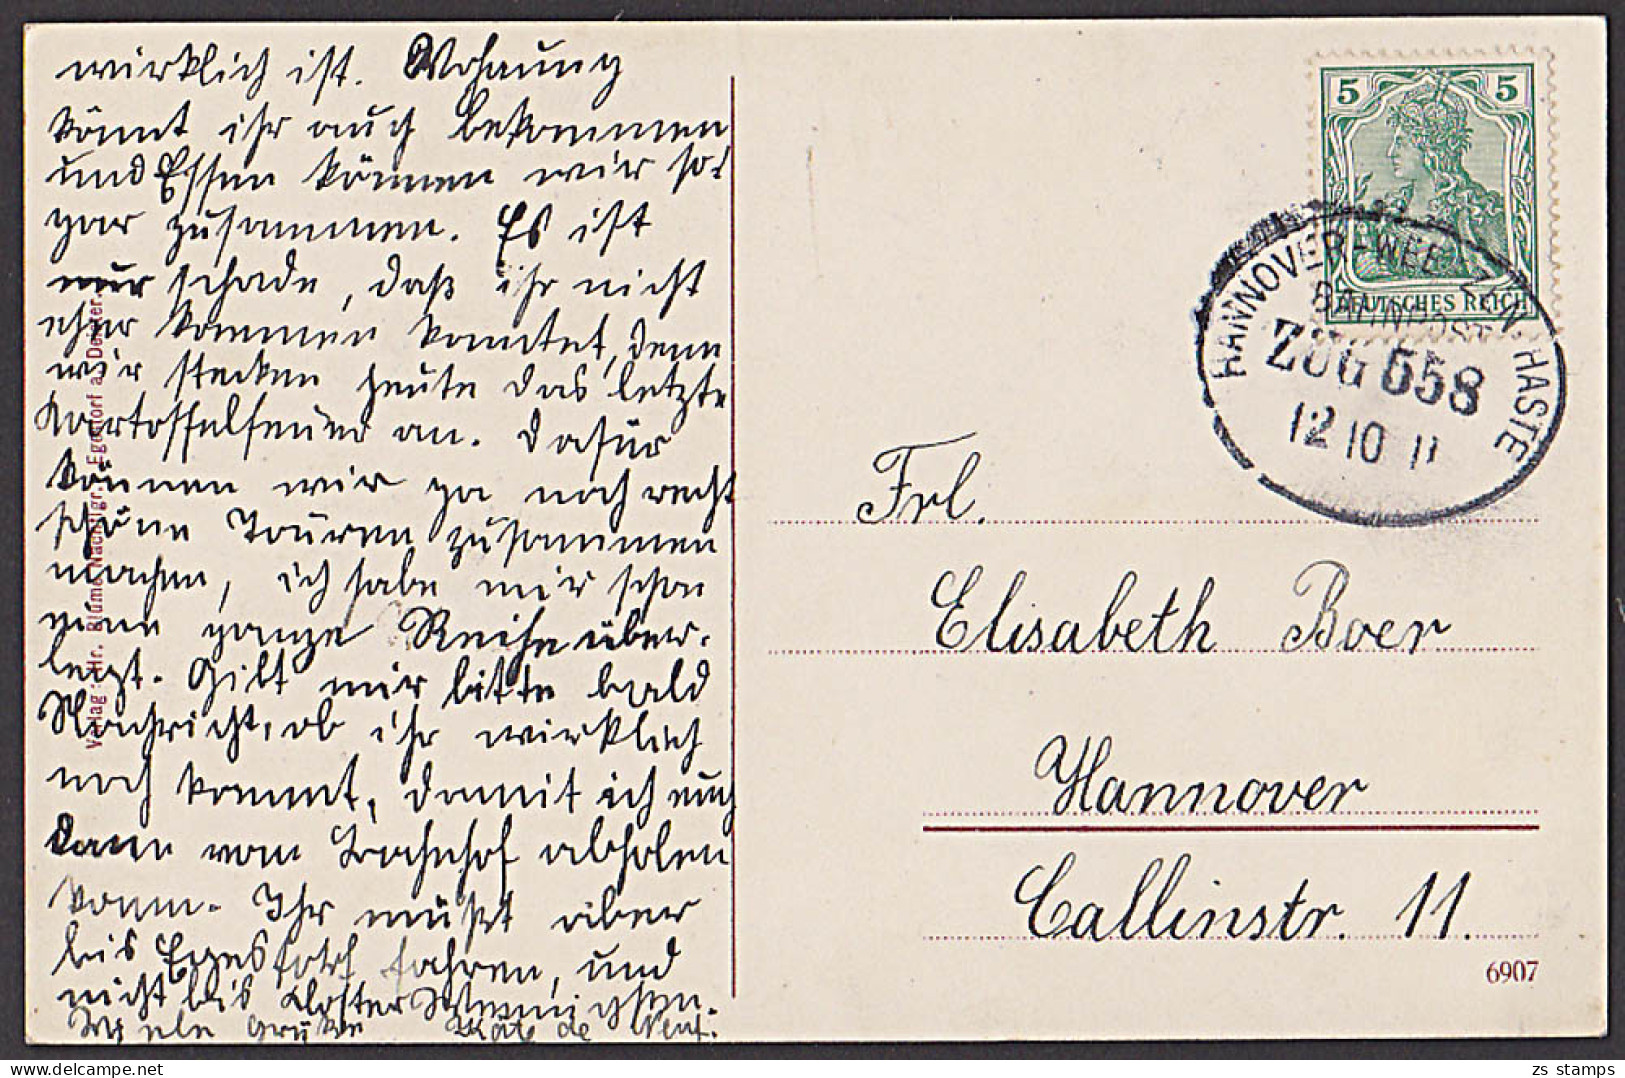 wirklich ist. Wohnung
könnt ihr auch bekommen
und Essen können wir so-
gar zusammen. Es ist
nur schade, daß ihr nicht
eher kommen konntet, denn
wir stecken heute das letzte
Kartoffelfeuer an. Dafür
können wir ja noch recht
schöne Touren zusammen
machen, ich habe mir schon
eine ganze Reihe über-
legt. Gebt mir bitte bald
Nachricht, ob ihr wirklich
noch kommt, damit ich euch
dann vom Bahnhof abholen
kann. Ihr müßt aber
bis Egestorf fahren, und
nicht bis Kloster Wennigsen.
Viele Grüße Käte de
Verlag: Hr. Blume Nachflgr. Egestorf a. Deister.
5 5
DEUTSCHES REICH
HANNOVER-WEETZEN-HASTE
BAHNPOST
ZUG 558
12 10 11
Frl.
Elisabeth Boer
Hannover
Callinstr. 11.
6907
zs stamps